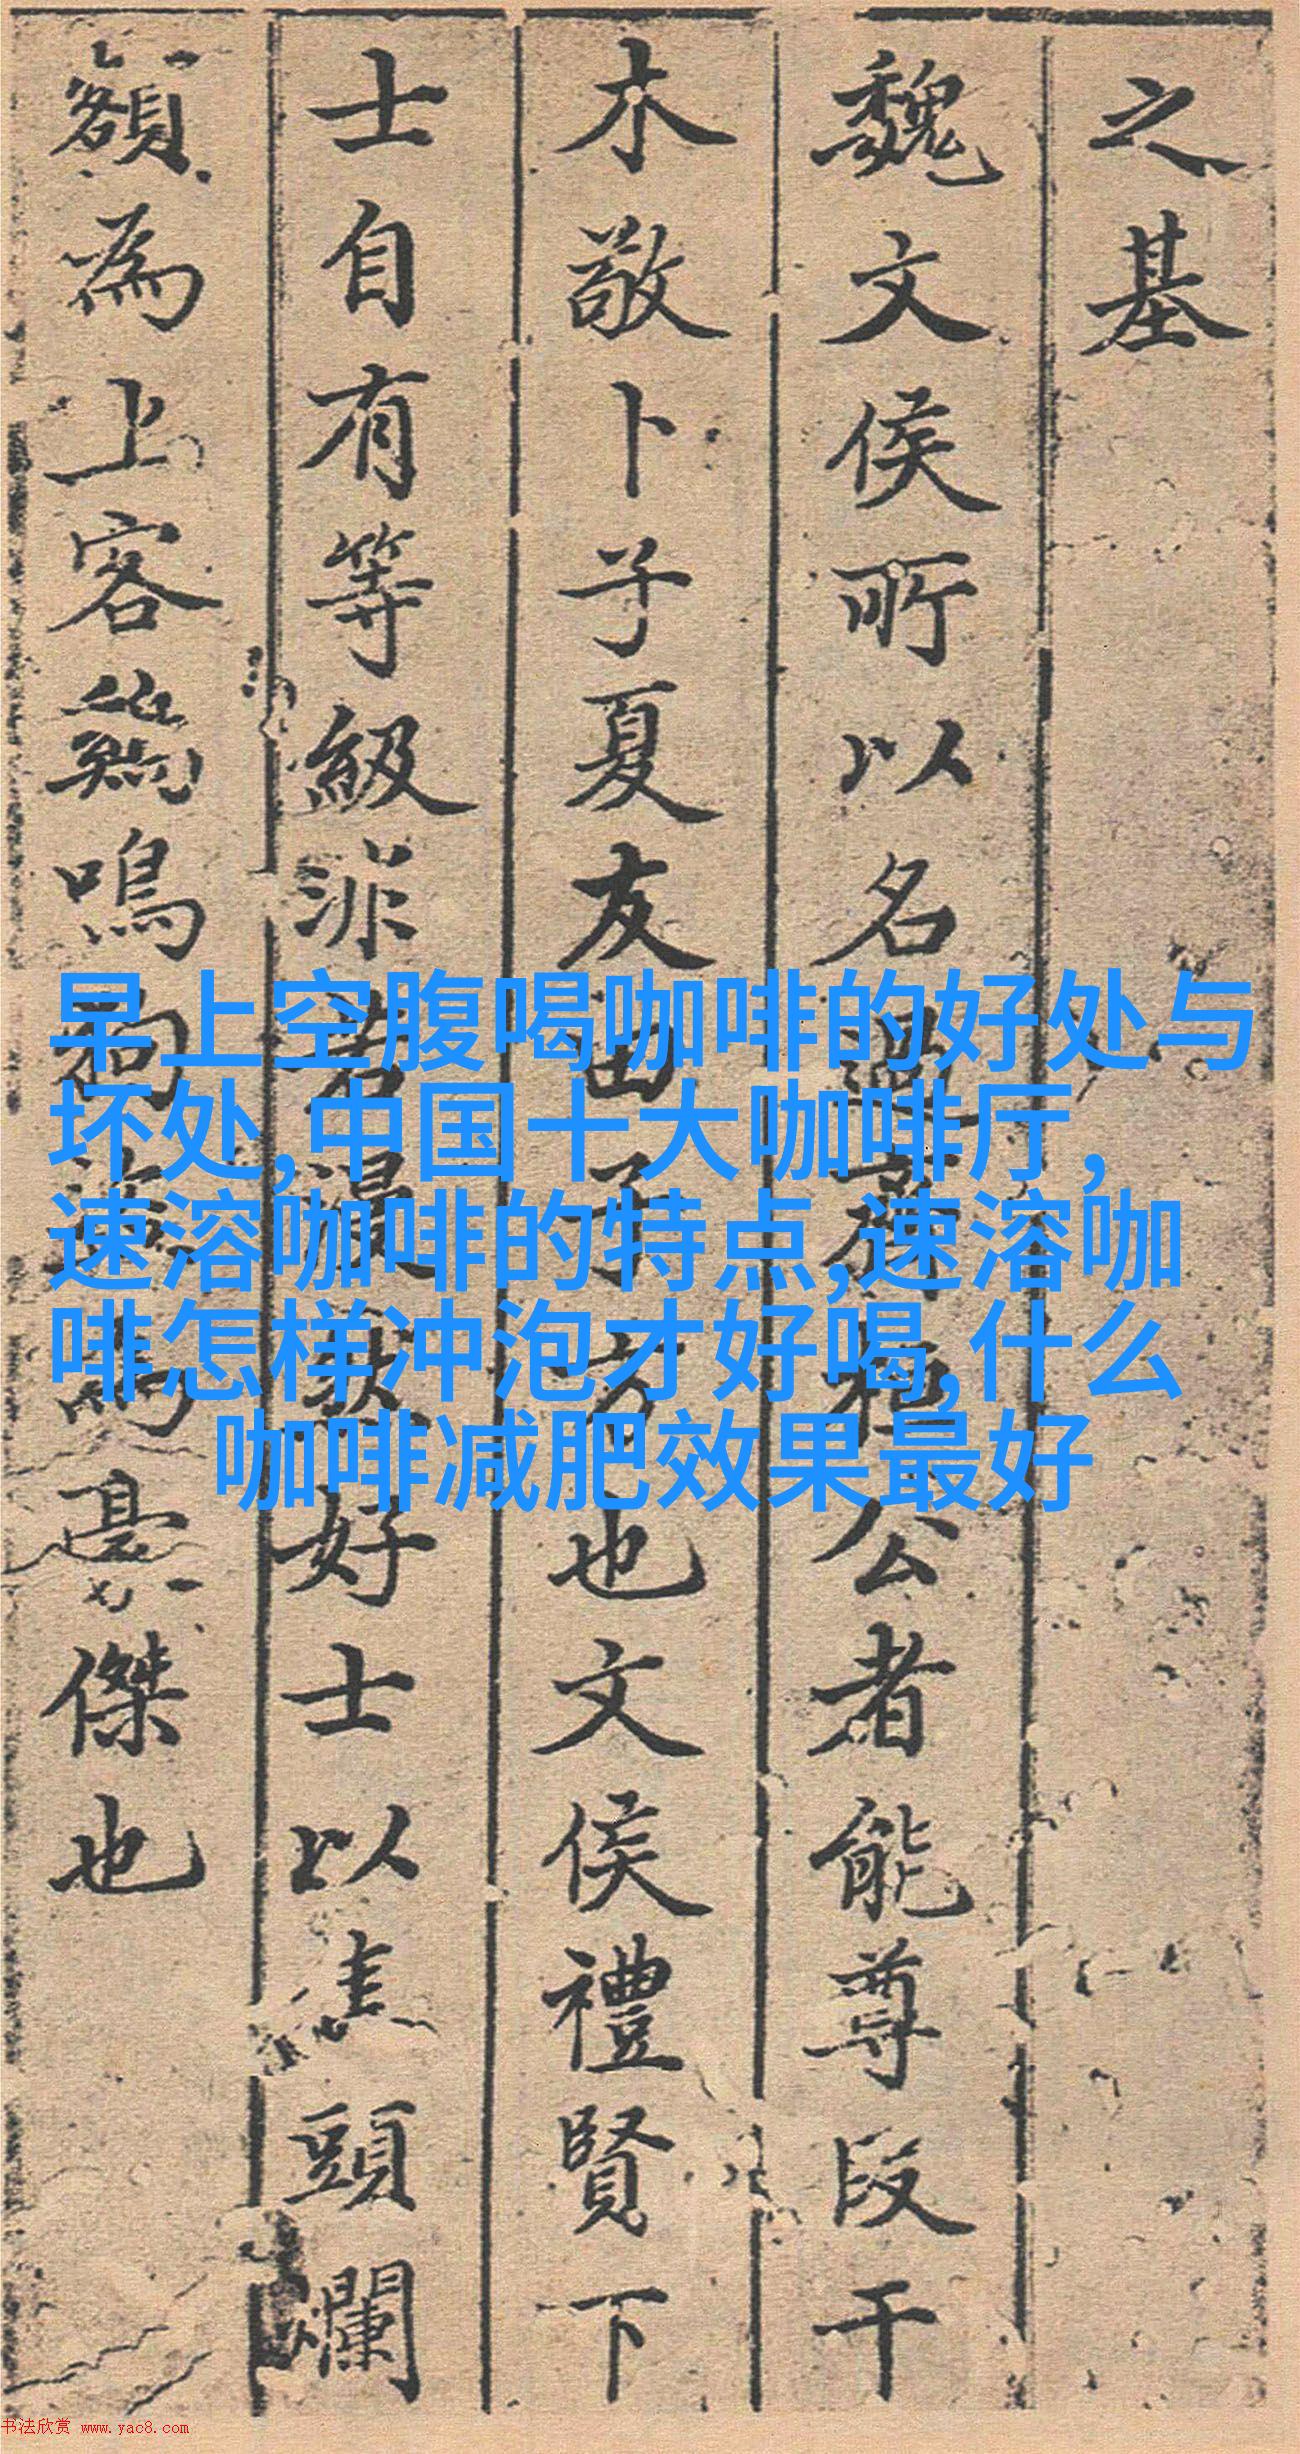 之基
魏文侯所以名過齊桓公者能尊段干
木敬卜子夏友田子方也文侯禮賢下
士自有等級非若好士以焦頭爛
額為上客鷄鳴狗為豪傑也
早上空腹喝咖啡的好处与
坏处,中国十大咖啡厅,
速溶咖啡的特点,速溶咖
啡怎样冲泡才好喝,什么
咖啡减肥效果最好
书法欣赏 www.yac8.com